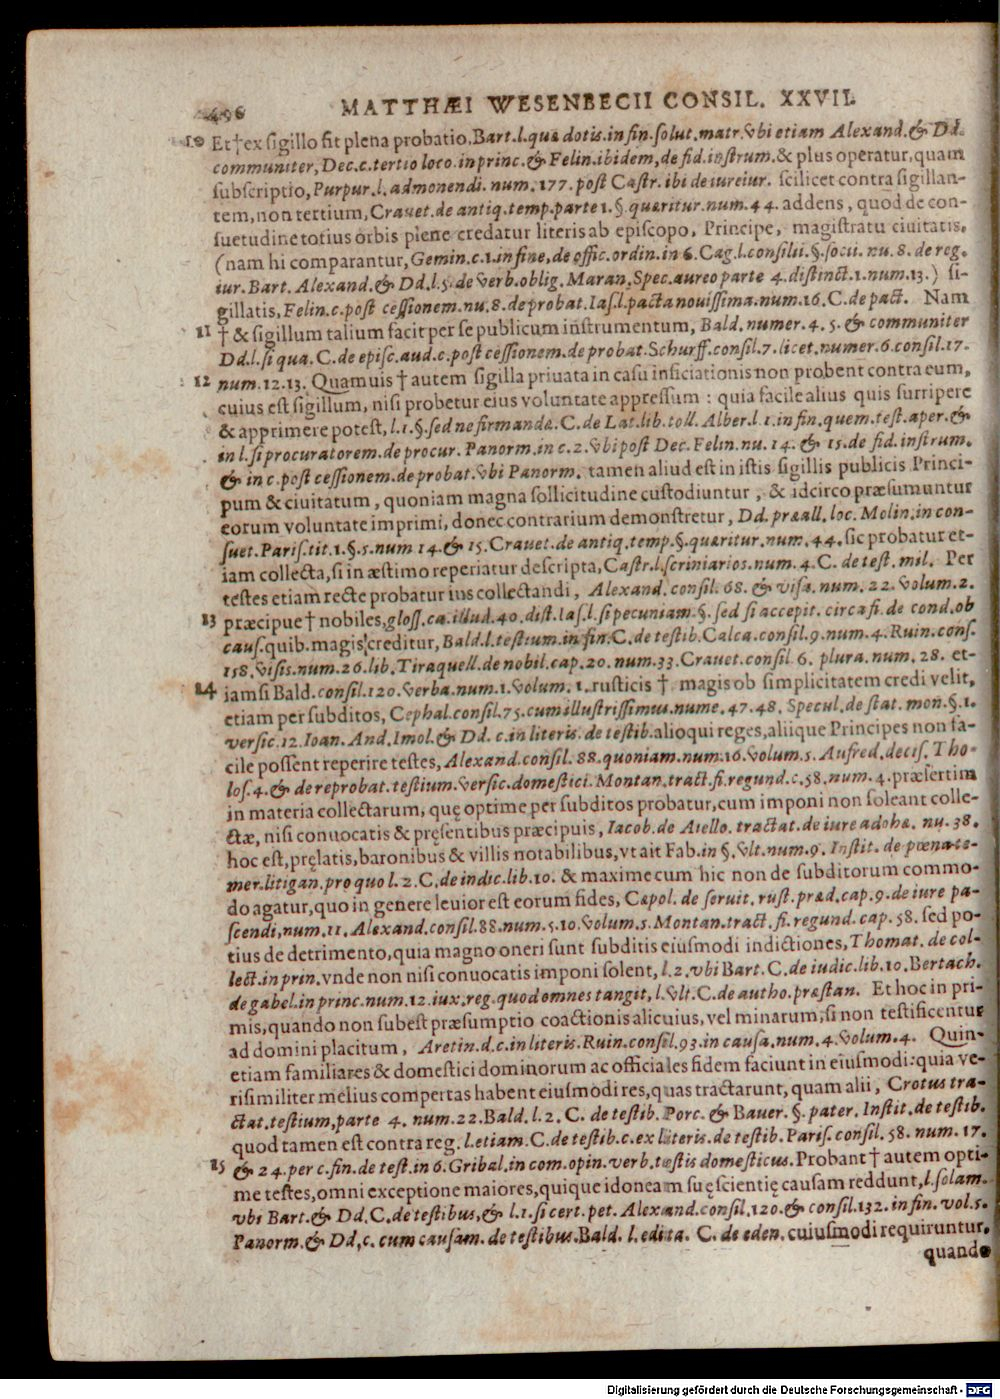 496 MATTHÆI WESENBECII CONSIL. XXVII.
10 Et † ex sigillo fit plena probatio, Bart. l. quæ dotis. in fin. solut. matr. vbi etiam Alexand. & Dd.
communiter, Dec. c. tertio loco. in princ. & Felin. ibidem, de fid. instrum. & plus operatur, quam
subscriptio, Purpur. l. admonendi. num. 177. post Castr. ibi de iureiur. scilicet contra sigillan-
tem, non tertium, Crauet. de antiq. temp. parte 1. §. quæritur. num. 44. addens, quod de con-
suetudine totius orbis plene credatur literis ab episcopo, Principe, magistratu ciuitatis.
(nam hi comparantur, Gemin. c. 1. in fine, de offic. ordin. in 6. Cag. l. consilii. §. socii. nu. 8. de reg.
iur. Bart. Alexand. & Dd. l. 5. de verb. oblig. Maran. Spec. aureo parte 4. distinct. 1. num. 13.) si-
gillatis, Felin. c. post cessionem. nu. 8. de probat. Ias. l. pacta nouissima. num. 16. C. de pact. Nam
11 † & sigillum talium facit per se publicum instrumentum, Bald. numer. 4. 5. & communiter
Dd. l. si qua. C. de episc. aud. c. post cessionem. de probat. Schurff. consil. 7. licet. numer. 6. consil. 17.
12 num. 12. 13. Quamuis † autem sigilla priuata in casu inficiationis non probent contra eum,
cuius est sigillum, nisi probetur eius voluntate appressum : quia facile alius quis surripere
& apprimere potest, l. 1. §. sed ne firmandæ. C. de Lat. lib. toll. Alber. l. 1. in fin. quem. test. aper. &
in l. si procuratorem. de procur. Panorm. in c. 2. vbi post Dec. Felin. nu. 14. & 15. de fid. instrum.
& in c. post cessionem. de probat. vbi Panorm. tamen aliud est in istis sigillis publicis Princi-
pum & ciuitatum, quoniam magna sollicitudine custodiuntur, & idcirco præsumuntur
eorum voluntate imprimi, donec contrarium demonstretur, Dd. præall. loc. Molin. in con-
suet. Paris. tit. 1. §. 5. num 14. & 15. Crauet. de antiq. temp. §. quæritur. num. 44. sic probatur et-
iam collecta, si in æstimo reperiatur descripta, Castr. l. scriniarios. num. 4. C. de test. mil. Per
testes etiam recte probatur ius collectandi, Alexand. consil. 68. & visa. num. 22. volum. 2.
13 præcipue † nobiles, gloss. ca. illud. 40. dist. Ias. l. si pecuniam. §. sed si accepit. circa fi. de cond. ob
caus. quib. magis creditur, Bald. l. testium. in fin. C. de testib. Calca. consil. 9. num. 4. Ruin. cons.
158. visis. num. 26. lib. Tiraquell. de nobil. cap. 20. num. 33. Crauet. consil 6. plura. num. 28. et-
14 iamsi Bald. consil. 120. verba. num. 1. volum. 1. rusticis † magis ob simplicitatem credi velit,
etiam per subditos, Cephal. consil. 75. cum illustrissimus. nume. 47. 48. Specul. de stat. mon. §. 1.
versic. 12. Ioan. And. Imol. & Dd. c. in literis. de testib. alioqui reges, aliique Principes non fa-
cile possent reperire testes, Alexand. consil. 88. quoniam. num. 16. volum. 5. Aufred. decis. Tho-
los. 4. & de reprobat. testium. versic. domestici. Montan. tract. fi. regund. c. 58. num. 4. præsertim
in materia collectarum, quę optime per subditos probatur, cum imponi non soleant colle-
ctæ, nisi conuocatis & pręsentibus præcipuis, Iacob. de Aiello. tractat. de iure adohæ. nu. 38.
hoc est, pręlatis, baronibus & villis notabilibus, vt ait Fab. in §. vlt. num. 9. Instit. de pœna te-
mer. litigan. pro quo l. 2. C. de indic. lib. 10. & maxime cum hic non de subditorum commo-
do agatur, quo in genere leuior est eorum fides, Cæpol. de seruit. rust. præd. cap. 9. de iure pa-
scendi, num. 11. Alexand. consil. 88. num. 5. 10. volum. 5. Montan. tract. fi. regund. cap. 58. sed po-
tius de detrimento, quia magno oneri sunt subditis eiusmodi indictiones, Thomat. de col-
lect. in prin. vnde non nisi conuocatis imponi solent, l. 2. vbi Bart. C. de iudic. lib. 10. Bertach.
de gabel. in princ. num. 12. iux. reg. quod omnes tangit, l. vlt. C. de autho. præstan. Et hoc in pri-
mis, quando non subest præsumptio coactionis alicuius, vel minarum, si non testificentur
ad domini placitum, Aretin. d. c. in literis. Ruin. consil. 93. in causa. num. 4. volum. 4. Quin-
etiam familiares & domestici dominorum ac officiales fidem faciunt in eiusmodi: quia ve-
risimiliter melius compertas habent eiusmodi res, quas tractarunt, quam alii, Crotus tra-
ctat. testium, parte 4. num. 22. Bald. l. 2. C. de testib. Porc. & Bauer. §. pater. Instit. de testib.
quod tamen est contra reg. l. etiam. C. de testib. c. ex literis. de testib. Paris. consil. 58. num. 17.
15 & 24. per c. fin. de test. in 6. Gribal. in com. opin. verb. testis domesticus. Probant † autem opti-
me testes, omni exceptione maiores, quique idoneam suę scientię causam reddunt, l. solam.
vbi Bart. & Dd. C. de testibus, & l. 1. si cert. pet. Alexand. consil. 120. & consil. 132. in fin. vol. 5.
Panorm. & Dd. c. cum causam. de testibus. Bald. l. edita. C. de eden. cuiusmodi requiruntur,
quando
Digitalisierung gefördert durch die Deutsche Forschungsgemeinschaft - DFG